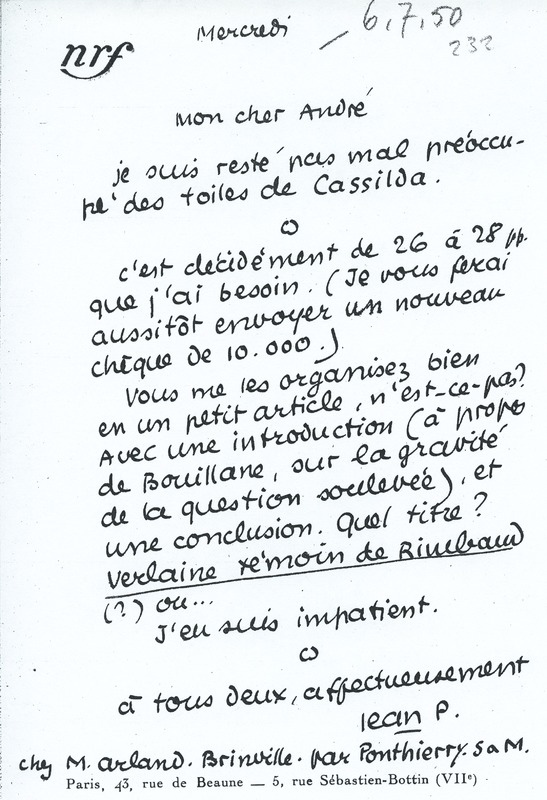 nrf
Mercredi
6,7,50
232
Mon cher André
je suis resté pas mal préoccu-
pé des toiles de Cassilda.
c'est décidément de 26 à 28 pp.
que j'ai besoin. (Je vous ferai
aussitôt envoyer un nouveau
chèque de 10.000.)
Vous me les organisez bien
en un petit article, n'est-ce-pas?
Avec une introduction (à propos
de Bouillane, sur la gravité
de la question soulevée), et
une conclusion. Quel titre?
Verlaine témoin de Rimbaud
(?) ou...
J'en suis impatient.
à tous deux, affectueusement
Jean P.
chez M. Arland. Brinville. par Ponthierry. S & M.
Paris, 43, rue de Beaune — 5, rue Sébastien-Bottin (VIIe)